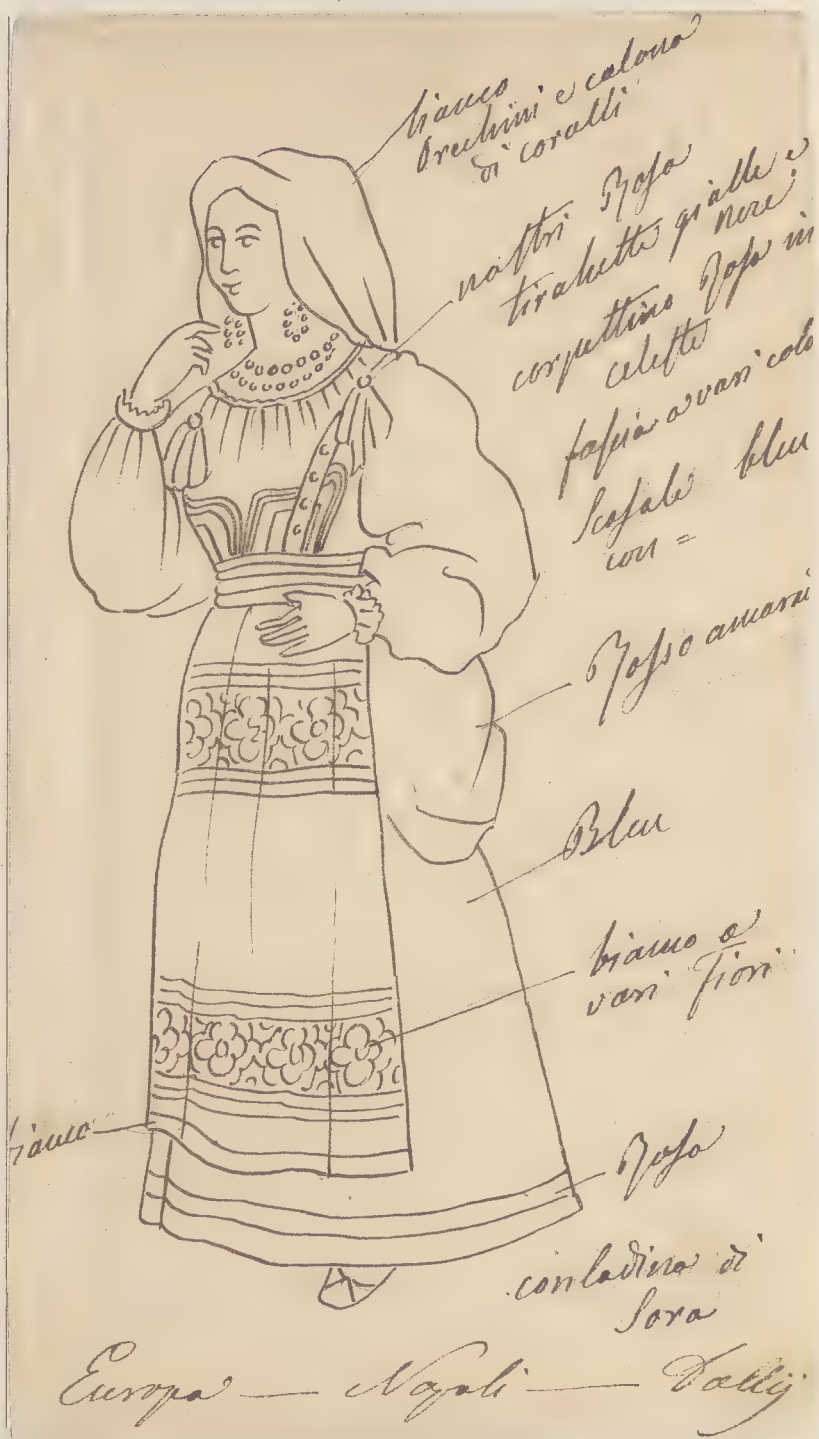 bianco
Orechini e colona
di coralli
nastri Rosa
tirakette gialle e
nere
corpettino Rosa in
celeste
fascia a vari colo
Scosale bleu
con =
Rosso amaran
Bleu
bianco a
vari Fiori
bianco
Rosa
contadina di
Sora
Europa — Napoli —